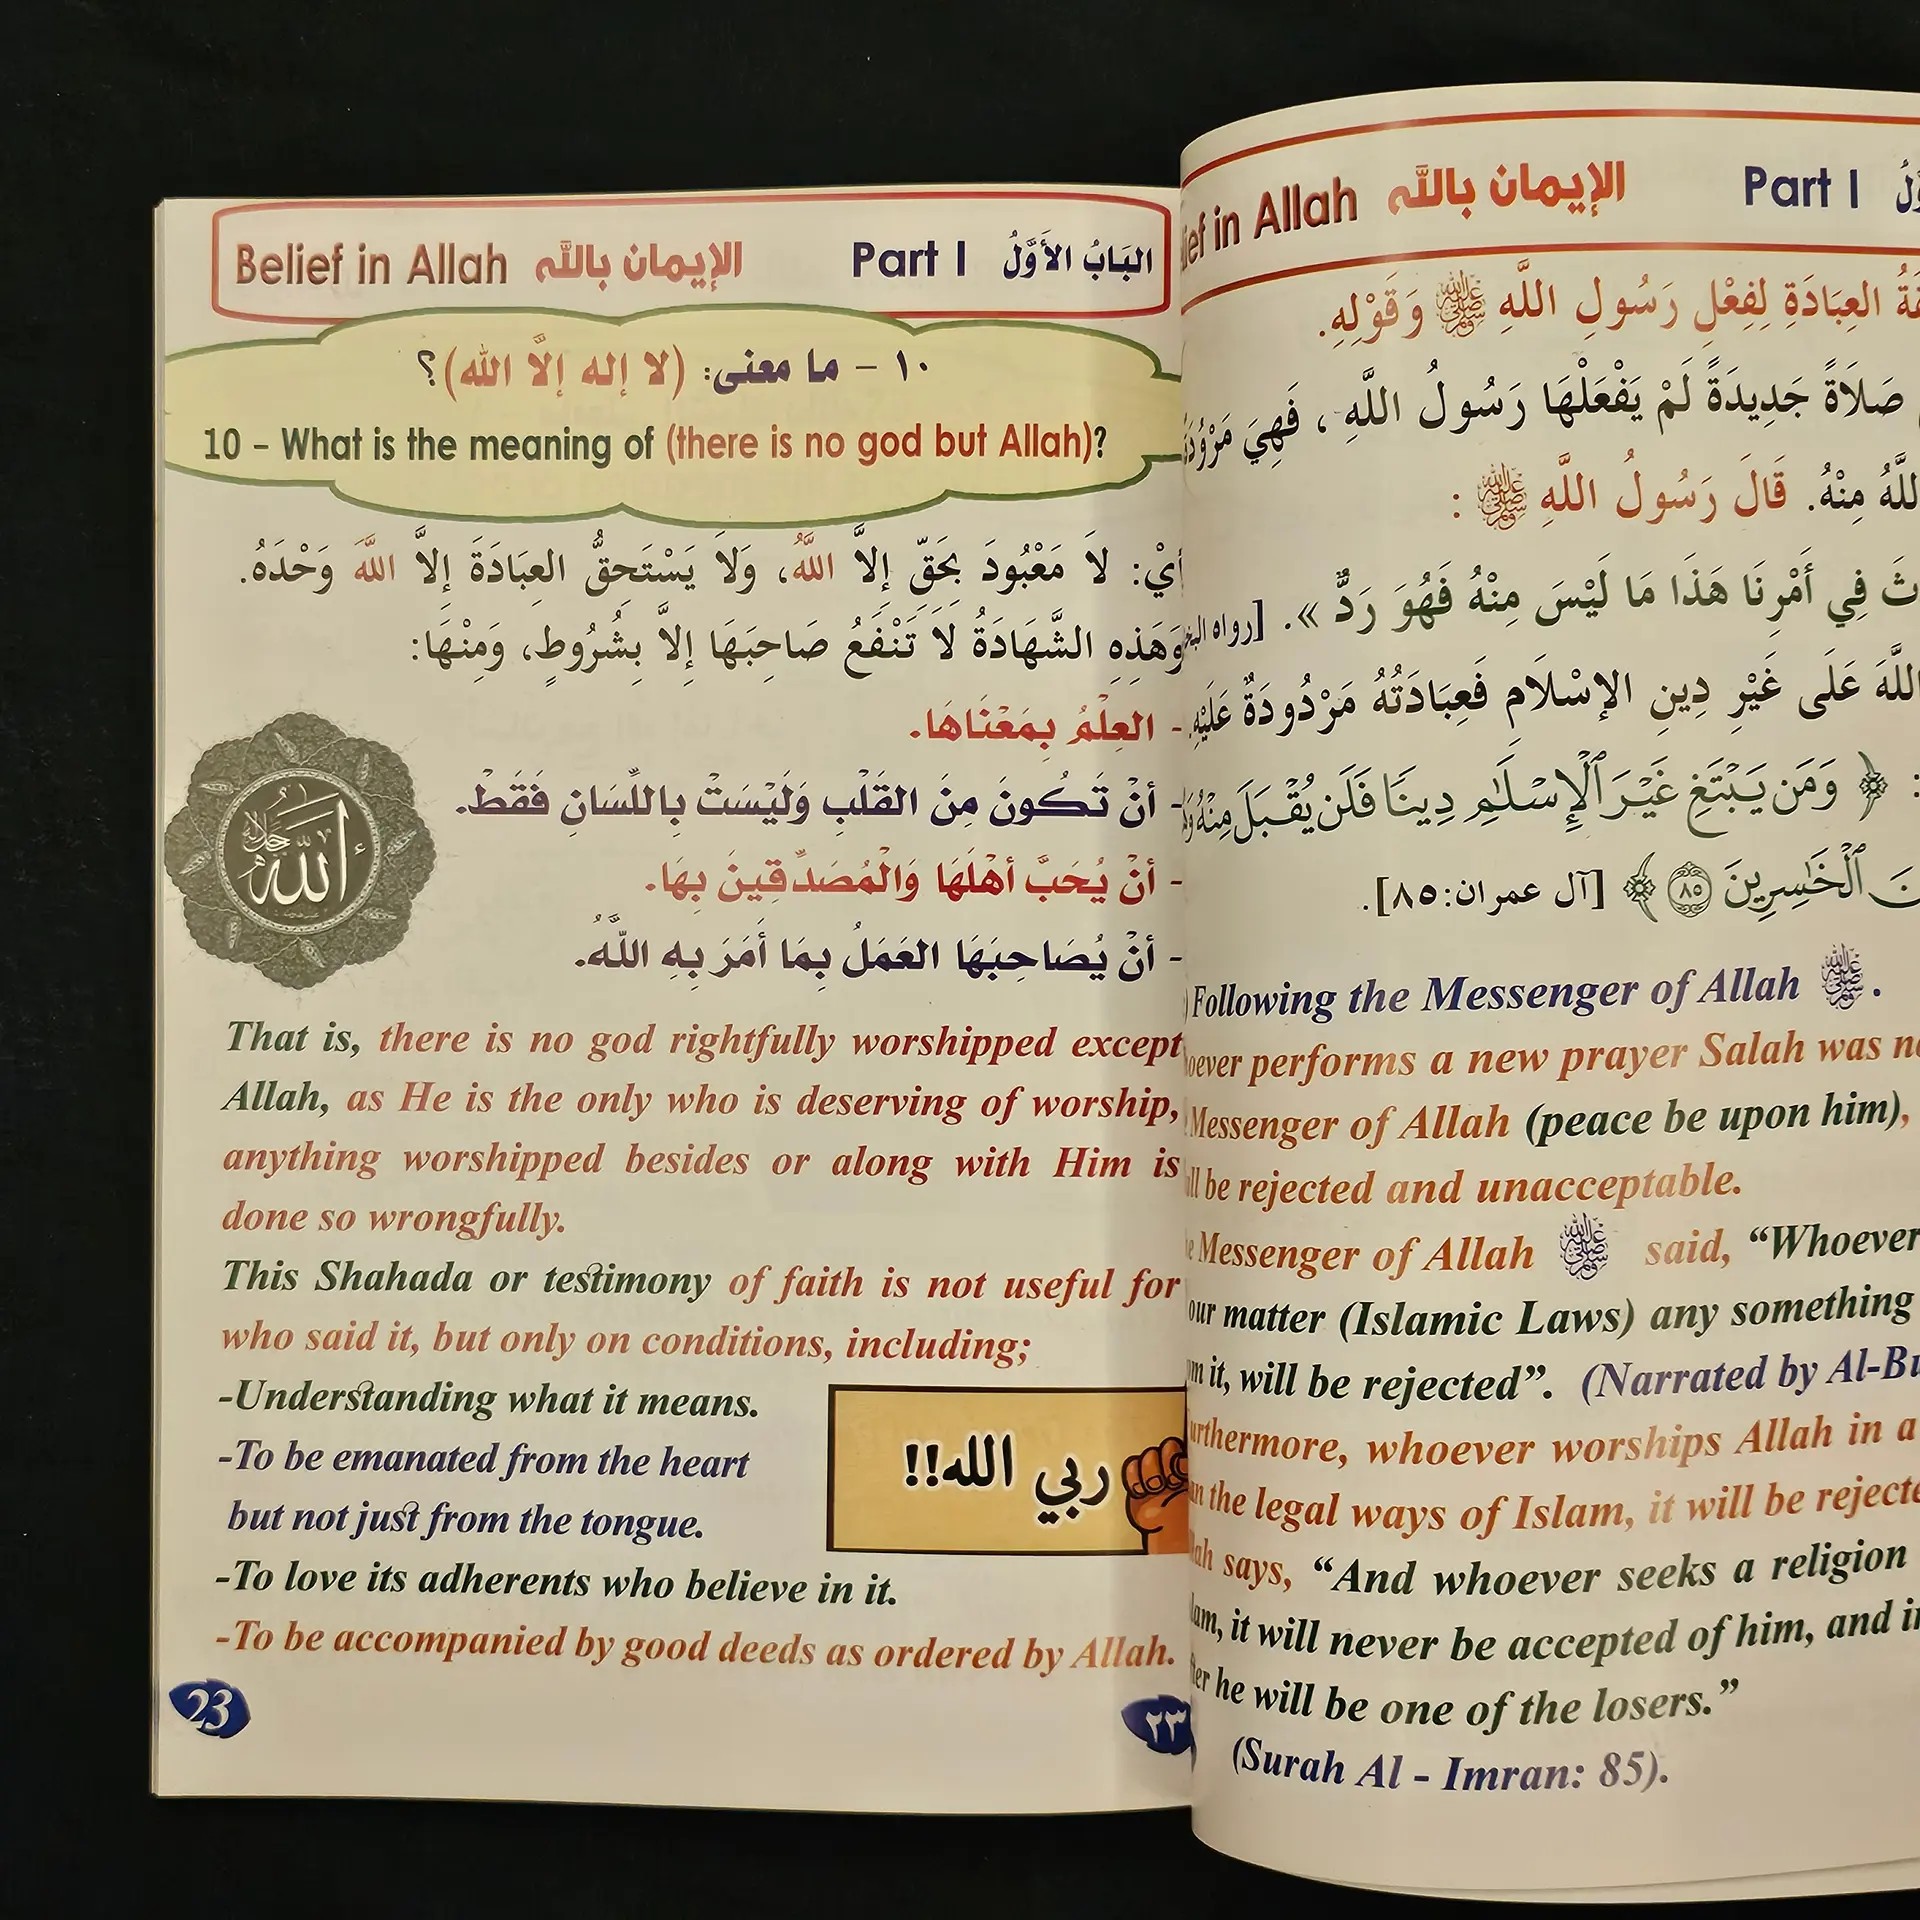 Belief in Allah الإيمان بالله Part I البَابُ الأَوَّلُ
١٠ - ما معنى: (لا إله إلَّا الله)؟
10 - What is the meaning of (there is no god but Allah)?
أيْ: لاَ مَعْبُودَ بِحَقّ إلاَّ اللَّهُ، وَلاَ يَسْتَحِقُّ العِبَادَةَ إلاَّ اللَّهَ وَحْدَهُ.
وَهَذِهِ الشَّهَادَةُ لاَ تَنْفَعُ صَاحِبَهَا إلاَّ بِشُرُوطٍ، وَمِنْهَا:
- العِلْمُ بِمَعْنَاهَا.
- أنْ تَكُونَ مِنَ القَلْبِ وَلَيْسَتْ بِاللِّسَانِ فَقَطْ.
- أنْ يُحَبَّ أهْلَهَا وَالْمُصَدِّقِينَ بِهَا.
- أنْ يُصَاحِبَهَا العَمَلُ بِمَا أَمَرَ بِهِ اللَّهُ.
الله جل جلاله
That is, there is no god rightfully worshipped except
Allah, as He is the only who is deserving of worship,
anything worshipped besides or along with Him is
done so wrongfully.
This Shahada or testimony of faith is not useful for
who said it, but only on conditions, including;
-Understanding what it means.
-To be emanated from the heart
but not just from the tongue.
-To love its adherents who believe in it.
-To be accompanied by good deeds as ordered by Allah.
ربي الله!!
23
٢٣
in Allah الإيمان بالله Part I
العِبَادَةِ لِفِعْلِ رَسُولِ اللَّهِ ﷺ وَقَوْلِهِ.
صَلاَةً جَدِيدَةً لَمْ يَفْعَلْهَا رَسُولُ اللَّهِ، فَهِيَ
مِنْهُ. قَالَ رَسُولُ اللَّهِ ﷺ :
فِي أَمْرِنَا هَذَا مَا لَيْسَ مِنْهُ فَهُوَ رَدٌّ ». [رواه
اللَّهَ عَلَى غَيْرِ دِينِ الإسْلَامِ فَعِبَادَتُهُ مَرْدُودَةٌ عَلَيْهِ.
: ﴿ وَمَن يَبْتَغِ غَيْرَ ٱلْإِسْلَٰمِ دِينًا فَلَن يُقْبَلَ مِنْهُ
ٱلْخَٰسِرِينَ ٨٥ ﴾ [آل عمران:٨٥].
Following the Messenger of Allah ﷺ.
performs a new prayer Salah was
Messenger of Allah (peace be upon him),
be rejected and unacceptable.
Messenger of Allah ﷺ said, “Whoever
our matter (Islamic Laws) any something
it, will be rejected”. (Narrated by
whoever worships Allah in
the legal ways of Islam, it will be
says, “And whoever seeks a religion
it will never be accepted of him, and
he will be one of the losers.”
(Surah Al - Imran: 85).